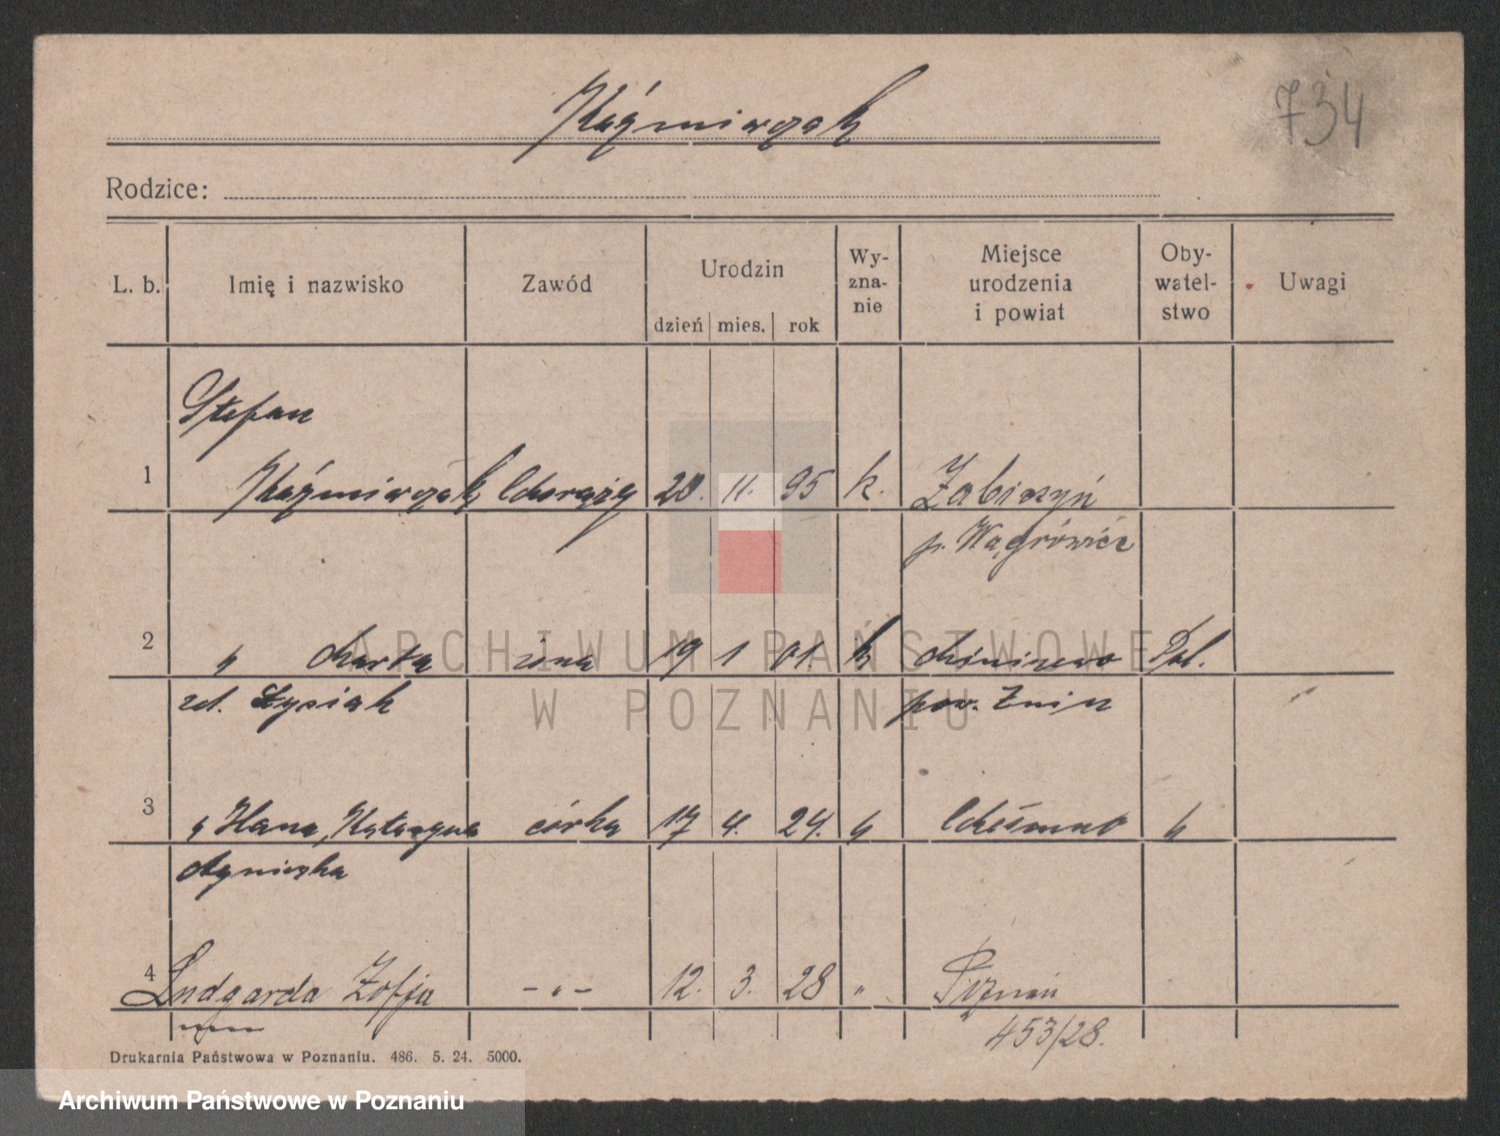 Kaźmierczak
734
Rodzice:
L. b. Imię i nazwisko Zawód Urodzin dzień mies. rok Wy-zna-nie Miejsce urodzenia i powiat Oby-watel-stwo Uwagi
Stefan
1 Kaźmierczak Chorąży 20. 11. 95 k. Żabiczyń
p. Wągrówiec
2 " Marta żona 19 1 01. k Pol.
zd. Łysiak pow. Żnin
3 " Hana, Katarzyna córka 17 4. 24. " Chełmno "
Agnieszka
4 Ludgarda Zofja - " - 12. 3. 28 " Poznań
453/28.
Drukarnia Państwowa w Poznaniu. 486. 5. 24. 5000.
ARCHIWUM PAŃSTWOWE
W POZNANIU
Archiwum Państwowe w Poznaniu